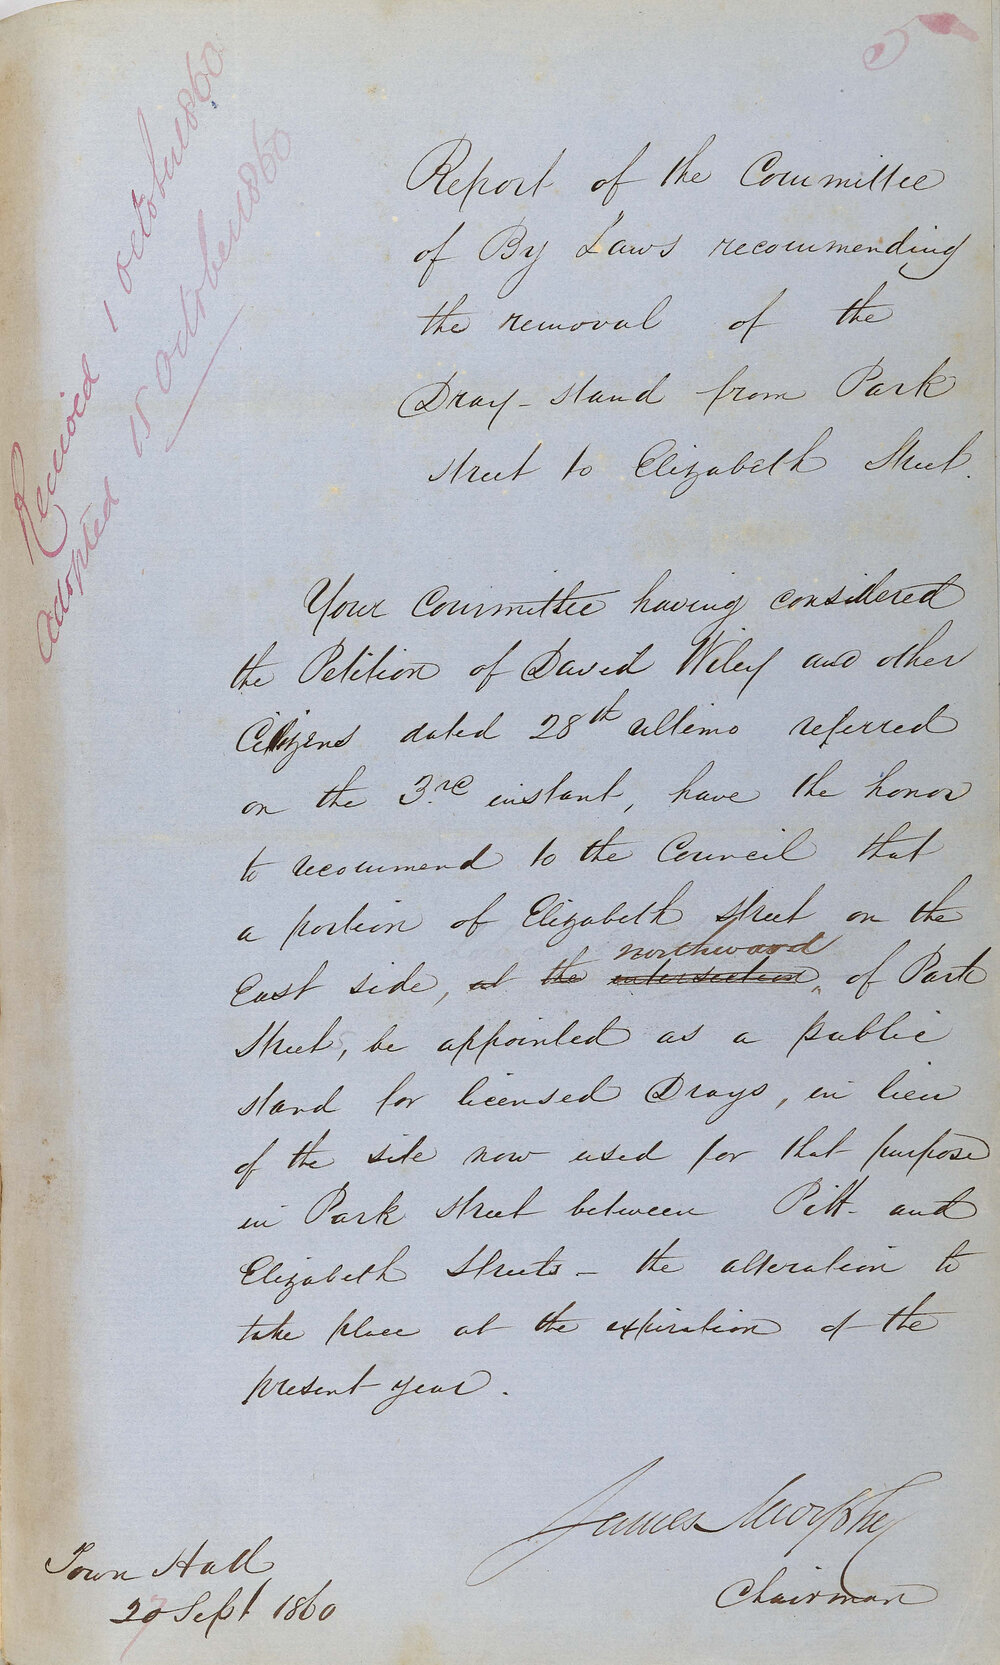 5
Received 1 October 1860
adopted 15 October 1860
Report of the Committee
of By Laws recommending
the removal of the
Dray-stand from Park
street to Elizabeth Street.
Your Committee having considered
the Petition of David Wiley and other
Citizens dated 28th ultimo referred
on the 3rd instant, have the honor
to recommend to the Council that
a portion of Elizabeth Street on the
East side, at the intersection northward of Park
Street, be appointed as a public
stand for licensed Drays, in lieu
of the site now used for that purpose
in Park Street between Pitt and
Elizabeth Streets - the alteration to
take place at the expiration of the
present year.
James Murphy
Chairman
Town Hall
20 Sept 1860